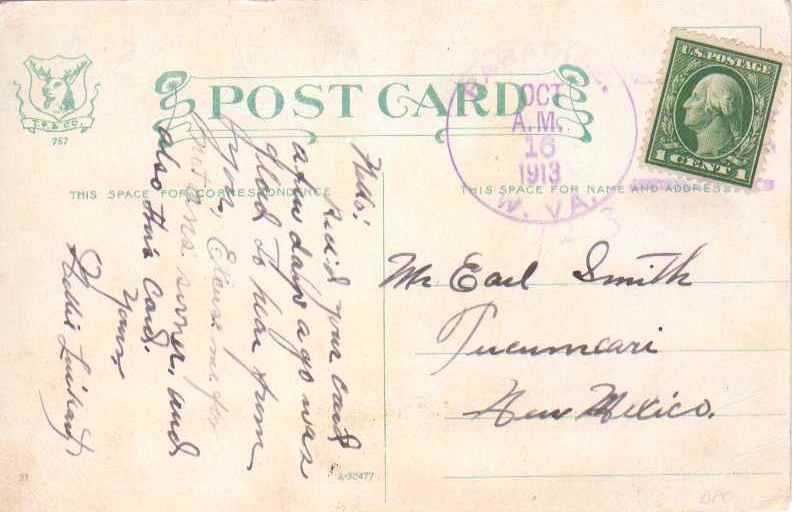 T.P. & CO.
757
POST CARD
OCT
A.M.
16
1913
W. VA.
U.S. POSTAGE
1 CENT 1
THIS SPACE FOR CORRESPONDENCE
THIS SPACE FOR NAME AND ADDRESS
Hello!
Rec'd your card
a few days ago was
glad to hear from
you. me for
not ans. sooner, and
also this card.
Yours
Mr Earl Smith
Tucumcari
New Mexico.
31
A-30477